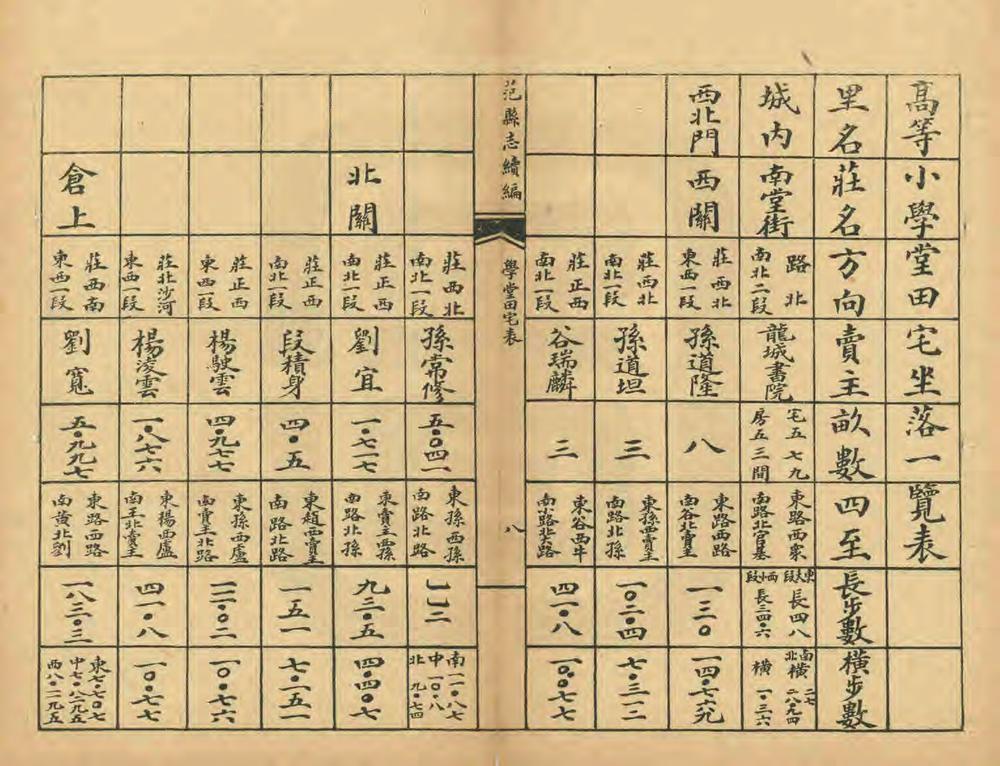 高等小學堂田宅坐落一覽表
里名 莊名 方向 賣主 畝數 四至 長步數 橫步數
城內 南堂街 路北南北二段 龍城書院 宅五七九房五三間 東路西眾南路北官基 東大段長四八西小段長三四·六 南橫二七北橫二八·九四橫一·三六
西北門 西關 莊西北東西一段 孫道隆 八 東路西路南谷北賣主 一三〇
莊西北南北一段 孫道坦 三 東孫西賣主南路北孫 一〇二·四 七·三一二
莊正西南北一段 谷瑞麟 三 東谷西牛南小路北大路 四一·八 一〇·七七
范縣志續編
學堂田宅表
八
莊西北南北一段 孫常修 五·〇四一 東孫西孫南路北路 一一二 南一一·八七中一〇·八北九·七四
北關 莊正西南北一段 劉宜 一·七一七 東賣主西孫南路北孫 九三·五 四·四〇七
莊正西南北一段 段積身 四·五 東趙西賣主南路北路 一五一 七·一五一
莊正西東西一段 楊駛雲 四·九七七 東孫西盧南賣主北路 一〇·七六
莊北沙河東西一段 楊淩雲 一·八七六 東楊西盧南王北賣主 四一·八 一〇·七七
倉上 莊西南東西一段 劉寬 五·九九七 東路西路南黃北劉 一八三·三 東七·七〇七中七·八二九五西八·一二九五